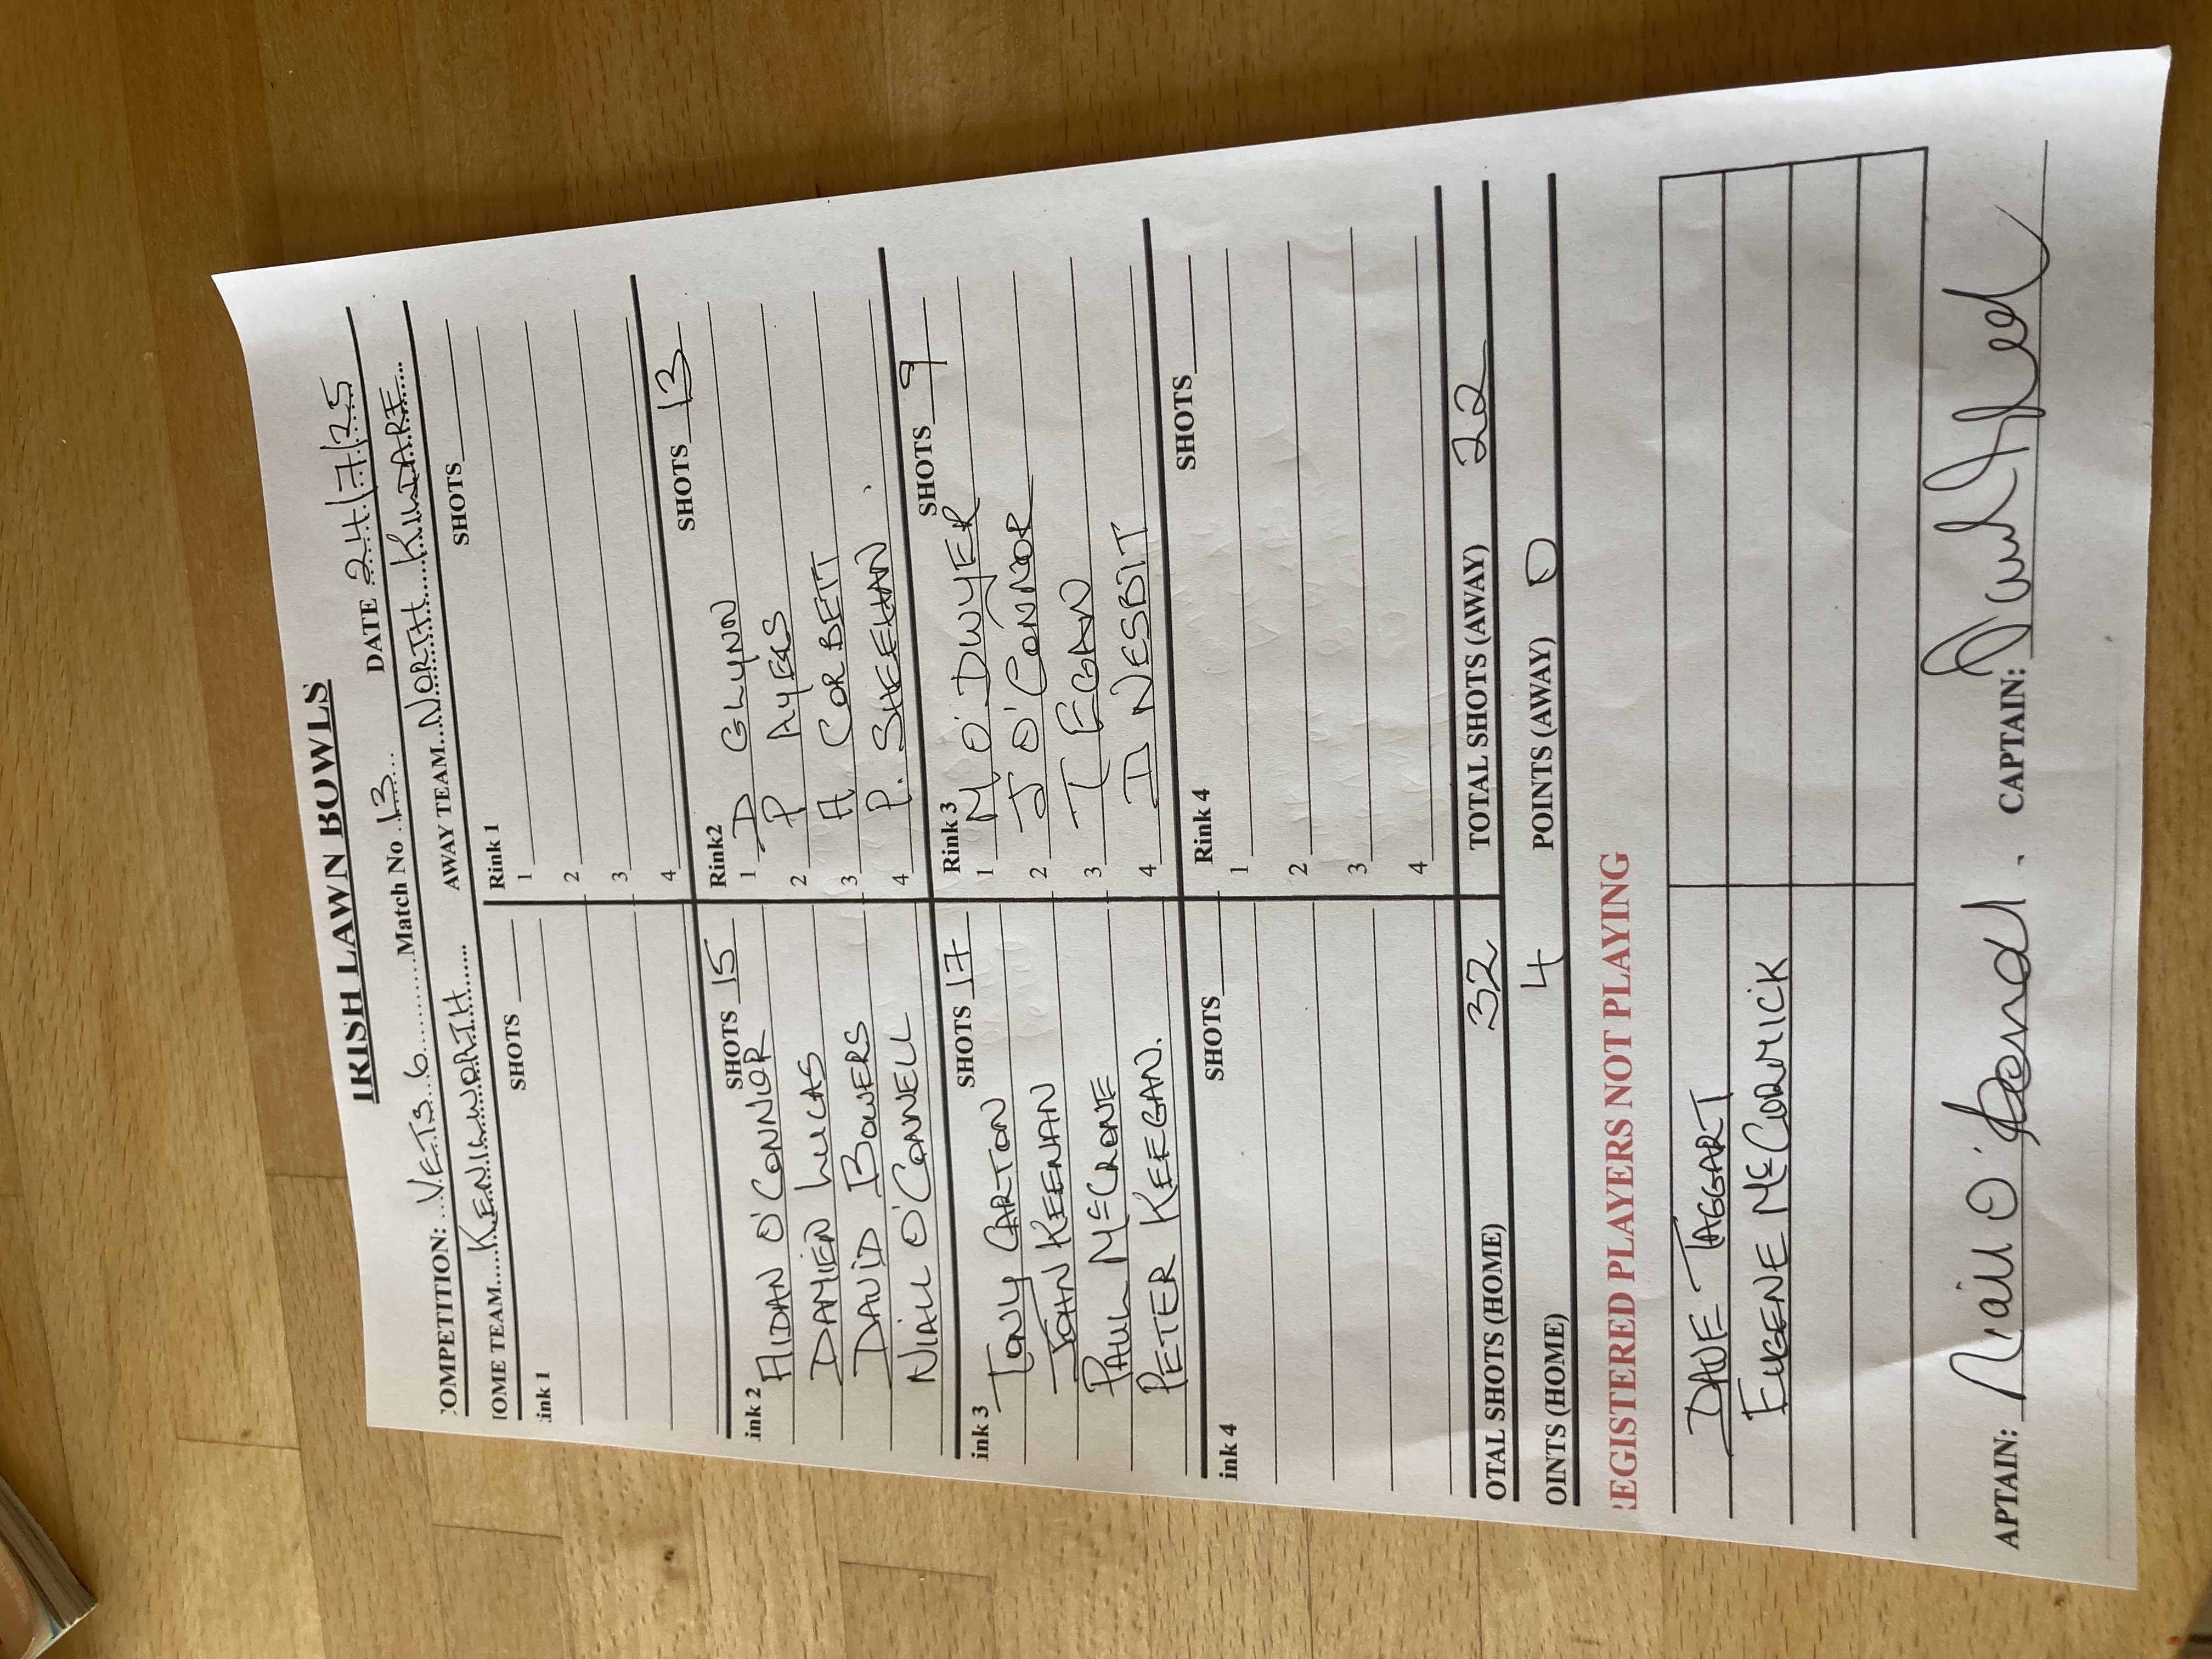 IRISH LAWN BOWLS
COMPETITION: VETS 6 Match No 13 DATE 24/7/25
OME TEAM KENILWORTH AWAY TEAM NORTH KILDARE
ink 1 SHOTS Rink 1 SHOTS
1
2
3
4
ink 2 SHOTS 15 Rink2 SHOTS 13
AIDAN O'CONNOR 1 D GLYNN
DAMIEN LUCAS 2 P AYERS
DAVID BOWERS 3 A CORBETT
NIALL O'CONNELL 4 P. SHEEHAN.
ink 3 SHOTS 17 Rink 3 SHOTS 9
TONY CARTON 1 M O'DWYER
JOHN KEENAN 2 J O'CONNOR
PAUL McCRONE 3 T EGAN
PETER KEEGAN. 4 D NESBIT
ink 4 SHOTS Rink 4 SHOTS
1
2
3
4
OTAL SHOTS (HOME) 32 TOTAL SHOTS (AWAY) 22
OINTS (HOME) 4 POINTS (AWAY) 0
REGISTERED PLAYERS NOT PLAYING
DAVE TAGGART
EUGENE McCORMICK
APTAIN: Niall O' CAPTAIN: